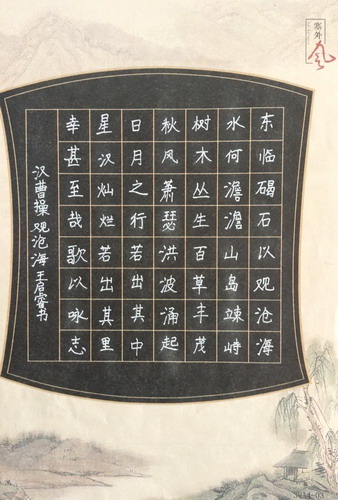 东临碣石以观沧海
水何澹澹山岛竦峙
树木丛生百草丰茂
秋风萧瑟洪波涌起
日月之行若出其中
星汉灿烂若出其里
幸甚至哉歌以咏志
汉曹操观沧海王启睿书
塞外
风